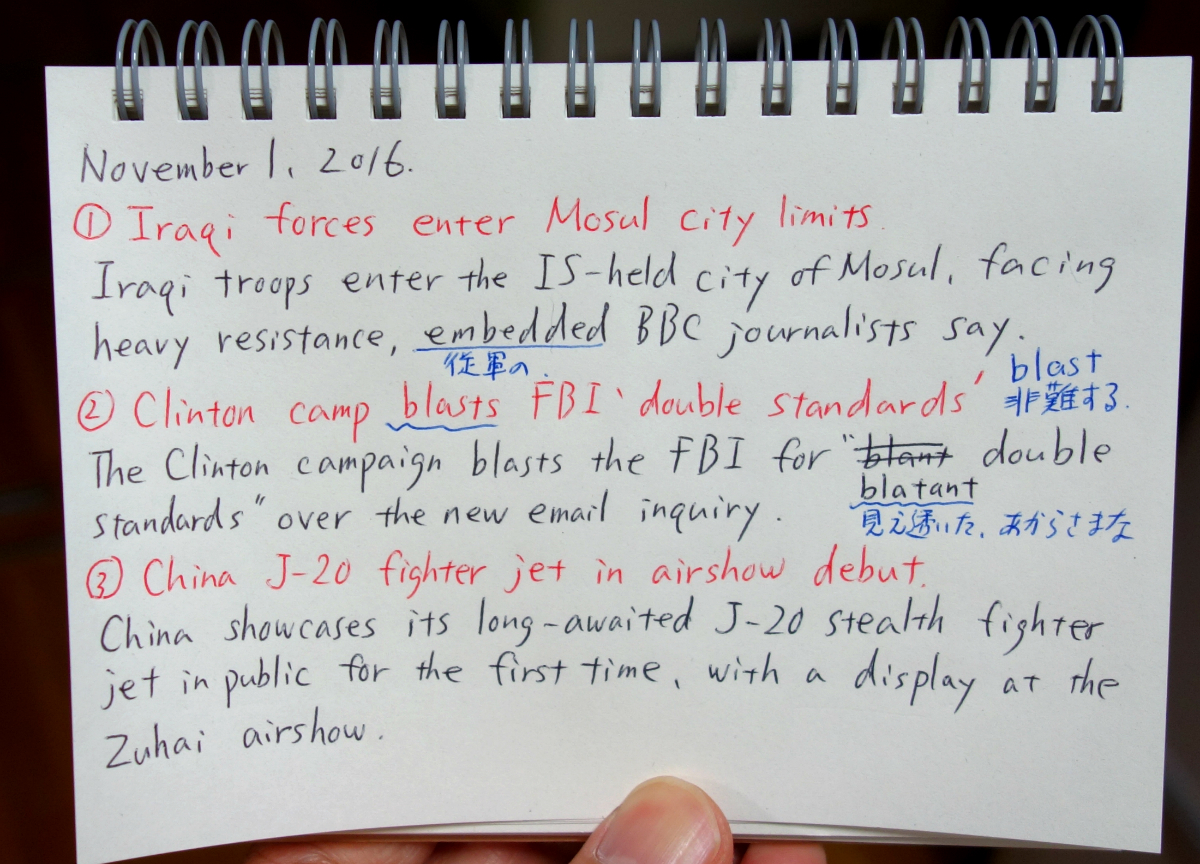 November 1, 2016.
① Iraqi forces enter Mosul city limits.
Iraqi troops enter the IS-held city of Mosul, facing
heavy resistance, embedded BBC journalists say.
従軍の.
blast
② Clinton camp blasts FBI 'double standards'
非難する.
The Clinton campaign blasts the FBI for "blant double
blatant
standards" over the new email inquiry.
見え透いた、あからさまな
③ China J-20 fighter jet in airshow debut.
China showcases its long-awaited J-20 stealth fighter
jet in public for the first time, with a display at the
Zuhai airshow.